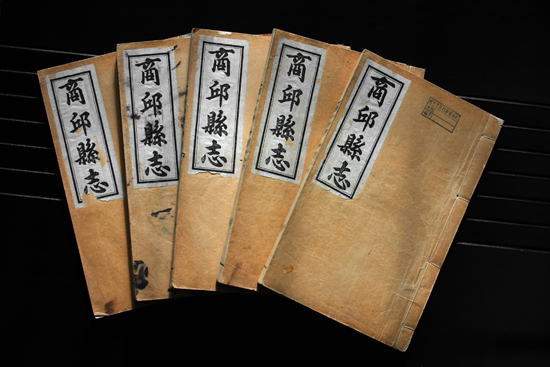 商邱縣志
商邱縣志
商邱縣志
商邱縣志
商邱縣志